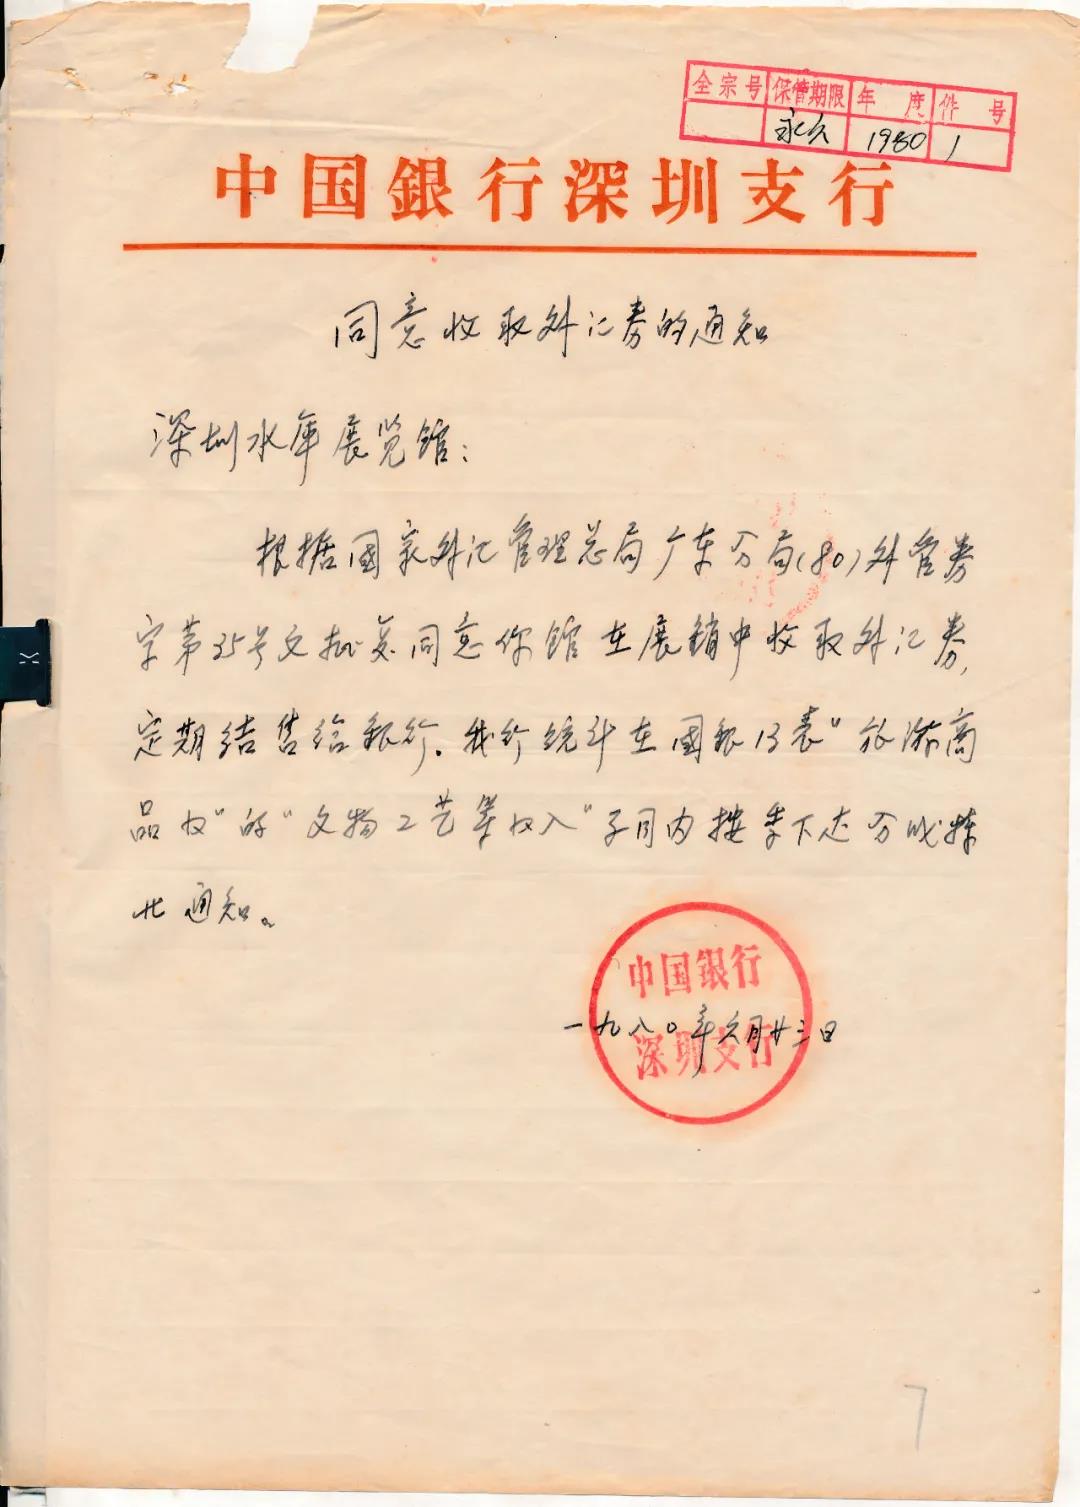 全宗号 保管期限 年度 件号
永久 1980 1
中国銀行深圳支行
同意收取外汇券的通知
深圳水库展览馆：
根据国家外汇管理总局广东分局(80)外管券
字第35号文批复同意你馆在展销中收取外汇券，
定期结售给银行。我行统计在国银13表“旅游商
品收”的“文物工艺等收入”子目内按季下达分成
此通知。
中国银行
深圳支行
一九八〇年六月廿三日
7